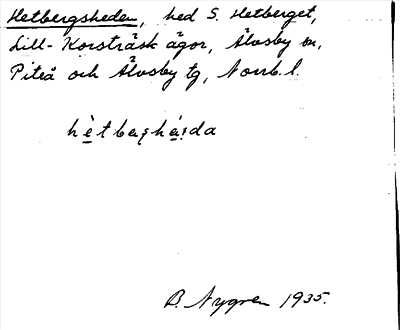 Hetbergsheden, hed S. Hetberget,
Lill-Korsträsk ägor, Älvsby sn,
Piteå och Älvsby tg, Norrb. l.
B. Nygren 1935.